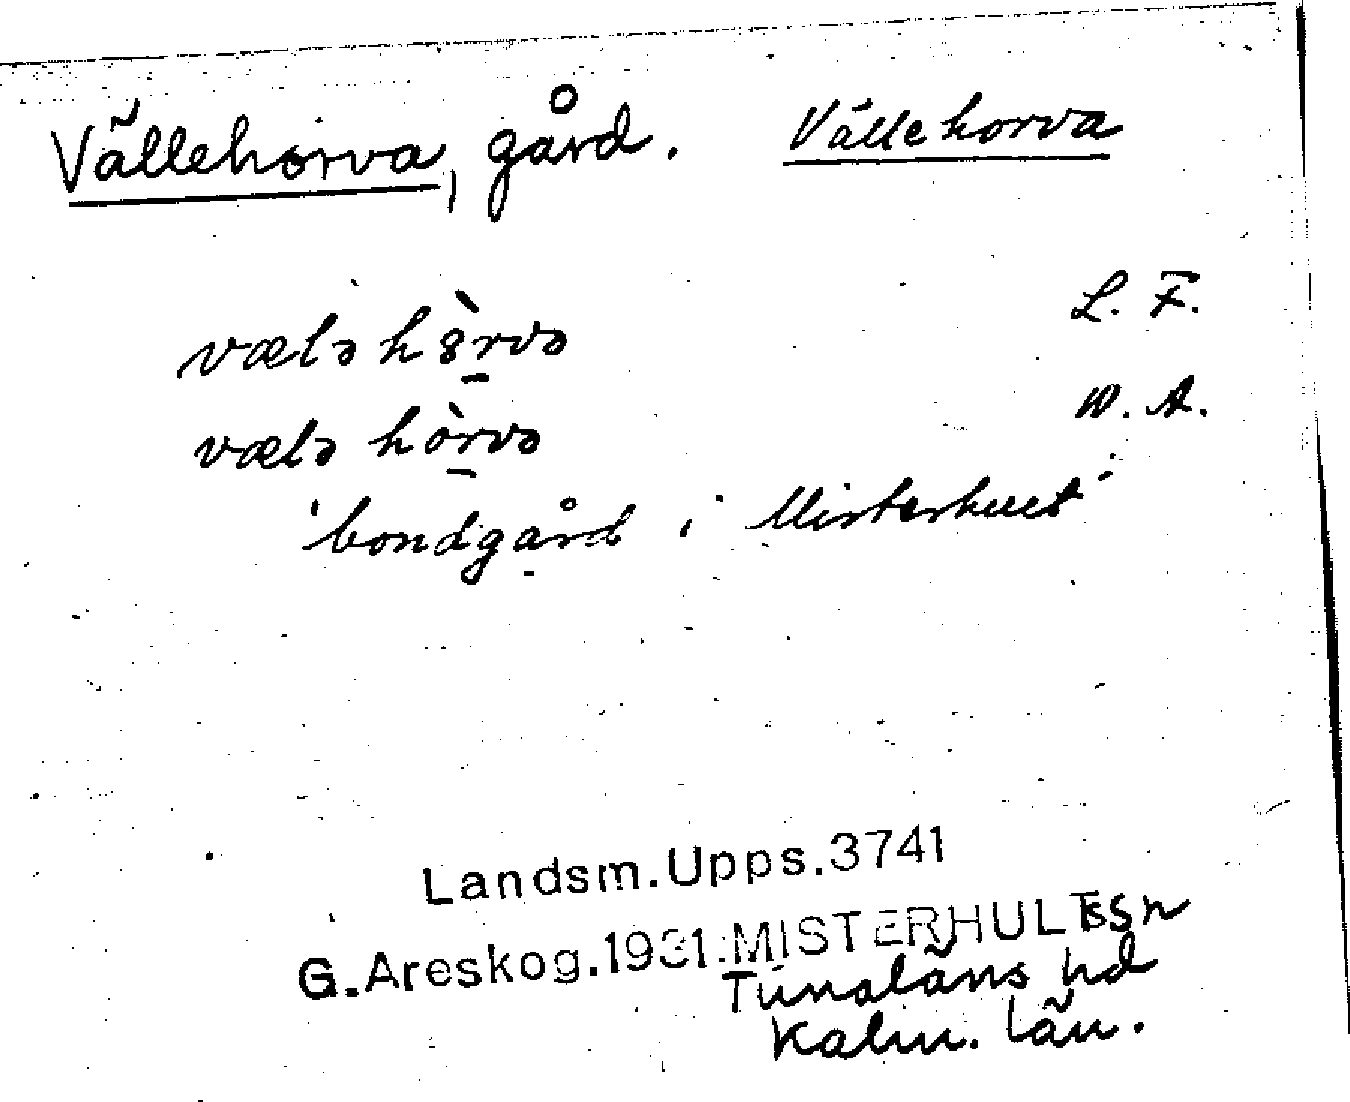 Vällehorva, gård. Vällehorva
vælə hȯ̀rvə L. F.
vælə hòrvə W. A.
'bondgård i Misterhult'
Landsm.Upps.3741
G.Areskog.1931.MISTERHULTS sn
Tunaläns hd
Kalm. län.